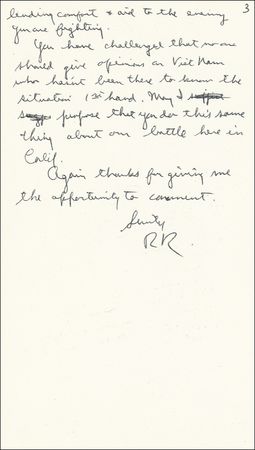 3
lending comfort & aid to the enemy
you are fighting.
You have challenged that no one
should give opinions on Viet Nam
who hasn't been there to know the
situation 1st hand. May I
propose that you do this same
thing about our battle here in
Calif.
Again thanks for giving me
the opportunity to comment.
RR.